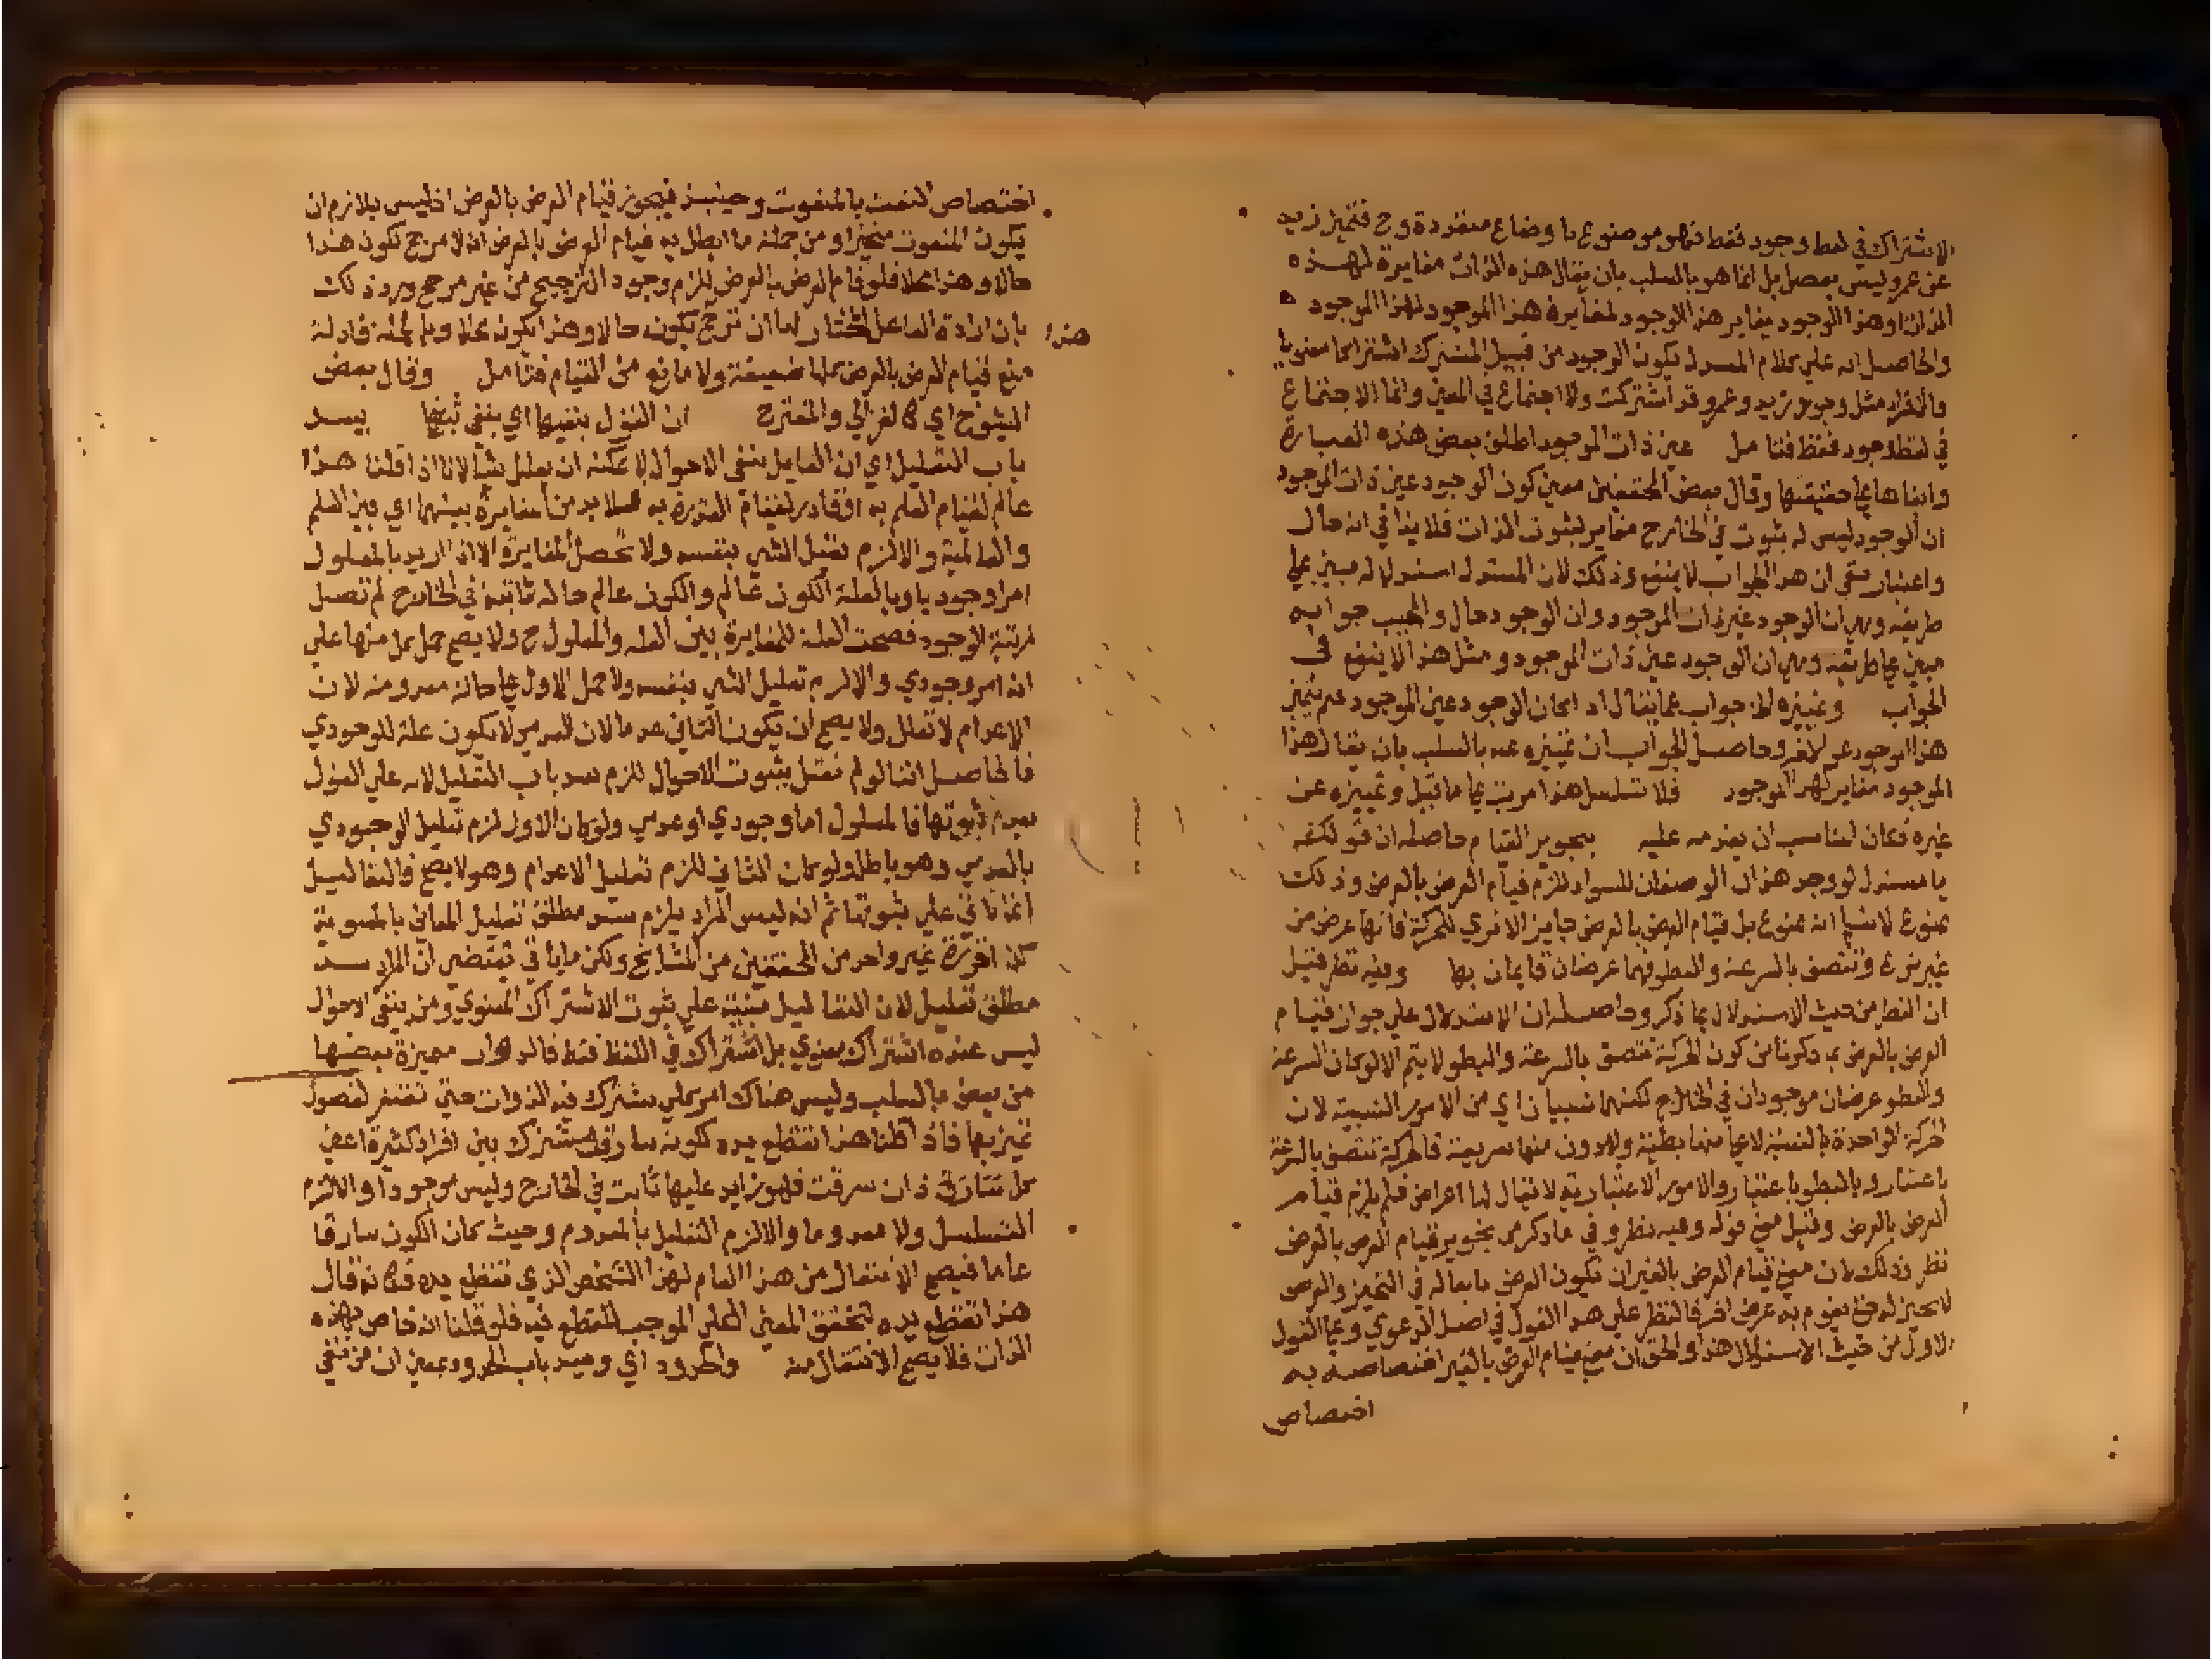 الاشتراك في لفظ وجود فقط فهو موضوع باوضاع متعددة وح فتميز زيد
عن عمرو ليس بفصل بل انما هو بالسلب بان يقال هذه الذات مغايرة لهذه
الذات او هذا الوجود يغاير هذا الوجود لمغايرة هذا الموجود لهذا الموجود
والحاصل انه علي كلام المستدل يكون الوجود من قبيل المشترك اشتراكا معنويا
والافراد مثل وجود زيد وعمرو قد اشتركت ولا اجتماع في المعنى وانما الاجتماع
في لفظ وجود فقط فتامل عين ذات الموجود اطلق بعض هذه العبارة
وابقاها علي حقيقتها وقال بعض المحققين معنى كون الوجود عين ذات الموجود
ان الوجود ليس له ثبوت في الخارج مغاير لثبوت الذات فلا ينافي انه حال
واعتبار بقي ان هذا الجواب لا ينفع وذلك لان المستدل استدلاله مبني علي
طريقه وهي ان الوجود غير ذات الموجود وان الوجود حال والمجيب جوابه
مبني علي طريقه وهي ان الوجود عين ذات الموجود ومثل هذا لا ينفع في
الجواب وتمييزه الخ جواب عما يقال اذا كان الوجود عين الموجود فبم يتميز
هذا الموجود عن الاخر وحاصل الجواب ان تمييزه عنه بالسلب بان يقال هذا
الموجود مغاير لهذا الموجود فلا تسلسل هذا مرتب علي ما قبل وتمييزه عن
غيره فكان المناسب ان يقدمه عليه بتجويز القيام حاصله ان قولكم
يا مستدل لو وجد هذان الوصفان للسواد للزم قيام العرض بالعرض وذلك
ممنوع لا نسلم انه ممنوع بل قيام العرض بالعرض جايز الا ترى للحركة فانها عرض من
وتتصف بالسرعة والبطو فهما عرضان قايمان بها وفيه نظر قيل
ان النظر من حيث الاستدلال بما ذكر وحاصله ان الاستدلال علي جواز قيام
العرض بالعرض بما ذكرنا من كون الحركة تتصف بالسرعة والبطو لا يتم الا لو كان السرعة
والبطو عرضان موجودان في الخارج لكنهما نسبيان اي من الامور النسبية لان
الحركة الواحدة بالنسبة لاعلي منها بطيئة ولادون منها سريعة فالحركة تتصف بالسرعة
باعتبار وبالبطو باعتبار والامور الاعتبارية لا يقال لها اعراض فلم يلزم قيام
العرض بالعرض وقيل معنى قوله وفيه نظر وفي ما ذكر من تجويز قيام العرض بالعرض
نظر وذلك لان معنى قيام العرض بالغير ان يكون العرض تابعا له في التحيز والعرض
لا تحيز له حتى يقوم به عرض اخر فالنظر علي هذا القول في اصل الدعوي وعلي القول
الاول من حيث الاستدلال هذا والحق ان معنى قيام العرض بالغير اختصاصه به
اختصاص
اختصاص النعت بالمنعوت وحينيذ فيجوز قيام العرض بالعرض اذ ليس بلازم ان
يكون المنعوت متحيزا ومن جملة ما ابطل به قيام العرض بالعرض انه لا مرجح لكون هذا
حالا وهذا محلا فلو قام العرض بالعرض للزم وجود الترجيح من غير مرجح ورد ذلك
بان ارادة الفاعل المختار لها ان ترجح بكونه حالا وهذا بكونه محلا وبالجملة فادلة
هذا
منع قيام العرض بالعرض كلها ضعيفة ولا مانع من القيام فتامل وقال بعض
الشيوخ اي كالغزالي والمقترح ان القول بنفيها اي بنفي ثبوتها يسد
باب التعليل اي ان القايل بنفي الاحوال لا يمكنه ان يعلل شيا لانا اذا قلنا هذا
عالم لقيام العلم به او قادر لقيام القدرة به فلا بد من مغايرة بينهما اي بين العلم
والعالمية والا لزم تعليل الشي بنفسه ولا تحصل المغايرة الا اذا اريد بالمعلول
امرا وجوديا وبالعلة الكون عالم والكون عالم حاله ثابتة في الخارج لم تصل
لمرتبة الوجود فصحت العلة للمغايرة بين العلة والمعلول ح ولا يصح حمل كل منهما علي
انه امر وجودي والا لزم تعليل الشي بنفسه ولا حمل الاول علي حالة معدومة لان
الاعدام لا تعلل ولا يصح ان يكون الثاني عدما لان العدمي لا يكون علة للوجودي
فالحاصل اننا لو لم نقل بثبوت الاحوال للزم سد باب التعليل لانه علي القول
بعدم ثبوتها فالمعلول اما وجودي او عدمي ولو كان الاول لزم تعليل الوجودي
بالعدمي وهو باطل ولو كان الثاني للزم تعليل الاعدام وهو لا يصح فالتعاليل
انما تاتي علي ثبوتها ثم انه ليس المراد يلزم سد مطلق تعليل المعاني بالمعنوية
كما قرره غير واحد من المحققين من المشايخ ولكن ما ياتي يقتضي ان المراد سد
مطلق تعليل لان التعاليل مبنية علي ثبوت الاشتراك المعنوي ومن ينفي الاحوال
ليس عنده اشتراك معنوي بل اشتراك في اللفظ فقط فالذوات مميزة بعضها
من بعض بالسلب وليس هناك امر كلي مشترك فيه الذوات حتى تفتقر لفصول
تميز بها فاذا قلنا هذا تقطع يده لكونه سارق مشترك بين افراد كثيرة اعني
كل ذات سرقت فهو زايد عليها ثابت في الخارج وليس موجودا والا لزم
التسلسل ولا معدوما والا لزم التعليل بالمعدوم وحيث كان الكون سارقا
عاما فيصح الانتقال من هذا العام لهذا الشخص الذي تقطع يده فكانه قال
هذا تقطع يده لتحقق المعنى الكلي الموجب للقطع فيه فلو قلنا انه خاص بهذه
الذات فلا يصح الانتقال منه والحدود اي ويسد باب الحدود بمعنى ان من نفي